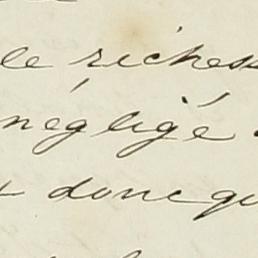 le richess
négligé
donc qu